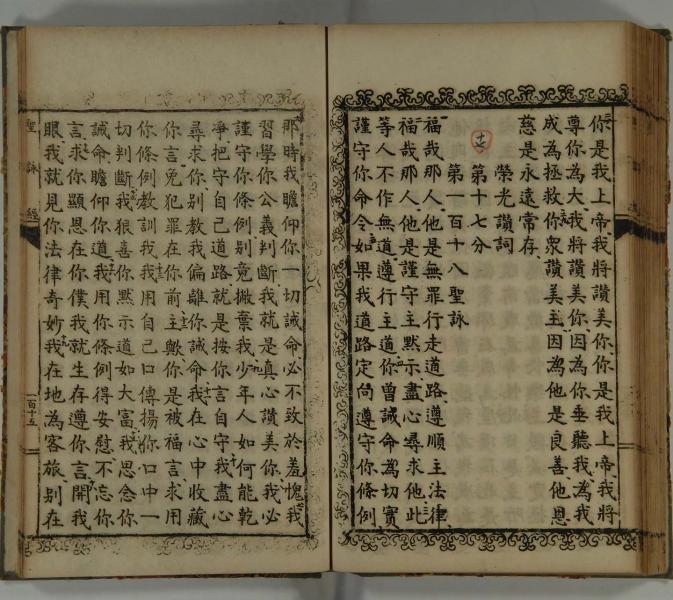 你是我上帝我將讚美你你是我上帝我將
尊你為大我將讚美你因為你垂聽我為我
成為拯救你眾讚美主因為他是良善他恩
慈是永遠常存
榮光讚詞
第十七分
第一百十八聖詠
福哉那人他是無罪行走道路遵順主法律
福哉那人他是謹守主默示盡心尋求他此
等人不作無道遵行主道你曾誡命為切實
謹守你命令如果我道路定向遵守你條例
那時我瞻仰你一切誡命必不致於羞愧我
習學你公義判斷我就是真心讚美你我必
謹守你條例別竟撇棄我少年人如何能乾
淨把守自己道路就是按你言自守我盡心
尋求你別教我偏離你誡命我在心中收藏
你言免犯罪在你前主歟你是被福言求用
你條例教訓我我用自己口傳揚你口中一
切判斷我狠喜你默示道如大富我思念你
誡命瞻仰你道我用你條例得安慰不忘你
言求你顯恩在你僕我就生存遵你言開我
眼我就見你法律奇妙我在地為客旅別在
聖詠經
一百十五